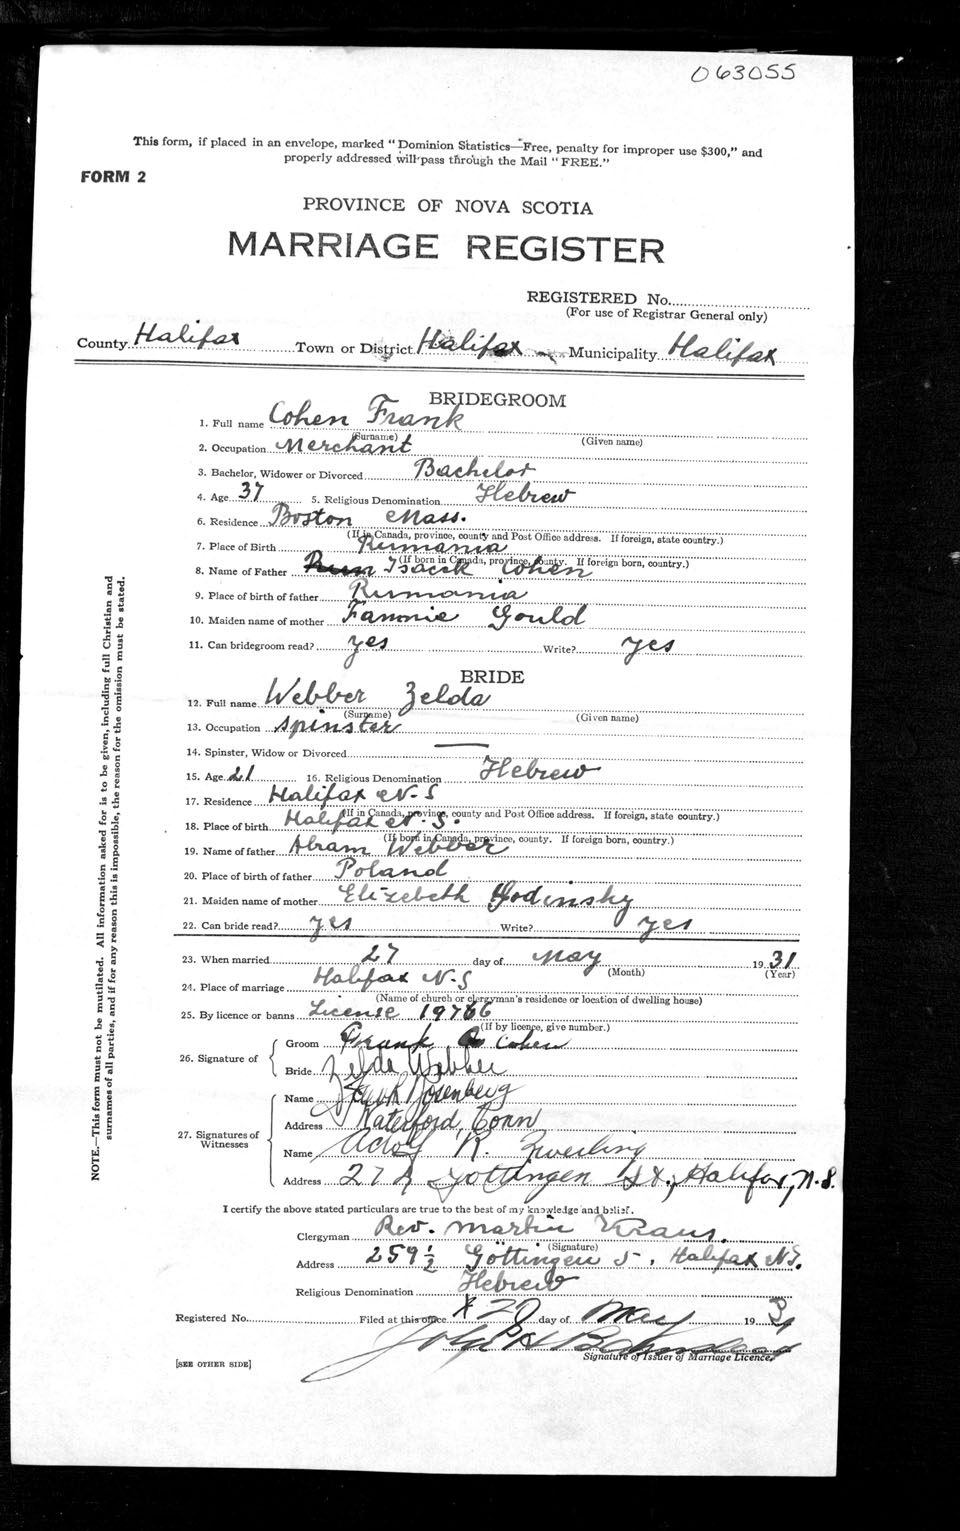 063055
This form, if placed in an envelope, marked "Dominion Statistics—Free, penalty for improper use $300," and
properly addressed will pass through the Mail "FREE."
FORM 2
PROVINCE OF NOVA SCOTIA
MARRIAGE REGISTER
REGISTERED No.
(For use of Registrar General only)
County Halifax Town or District Halifax Municipality Halifax
BRIDEGROOM
1. Full name Cohen Frank
(Surname) (Given name)
2. Occupation Merchant
3. Bachelor, Widower or Divorced Bachelor
4. Age 37 5. Religious Denomination Hebrew
6. Residence Boston Mass.
(If in Canada, province, county and Post Office address. If foreign, state country.)
7. Place of Birth Rumania
(If born in Canada, province, county. If foreign born, country.)
8. Name of Father Rum Isacck Cohen
9. Place of birth of father Rumania
10. Maiden name of mother Fannie Gould
11. Can bridegroom read? yes Write? yes
BRIDE
12. Full name Webber Zelda
(Surname) (Given name)
13. Occupation spinster
14. Spinster, Widow or Divorced —
15. Age 21 16. Religious Denomination Hebrew
17. Residence Halifax N.S
(If in Canada, province, county and Post Office address. If foreign, state country.)
18. Place of birth Halifax N.S.
(If born in Canada, province, county. If foreign born, country.)
19. Name of father Abram Webber
20. Place of birth of father Poland
21. Maiden name of mother Elizebeth Godinsky
22. Can bride read? yes Write? yes
23. When married 27 day of May 1931
(Month) (Year)
24. Place of marriage Halifax N.S
(Name of church or clergyman's residence or location of dwelling house)
25. By licence or banns License
(If by licence, give number.)
26. Signature of
Groom Frank Cohen
Bride Zelda Webber
27. Signatures of Witnesses
Name Rosenberg
Address Waterford, Conn
Name R. Zwerling
Address 27 Gottingen St., Halifax, N.S.
I certify the above stated particulars are true to the best of my knowledge and belief.
Clergyman Rev. Martin Kraus.
(Signature)
Address 259½ Göttingen S., Halifax N.S.
Religious Denomination Hebrew
Registered No. Filed at this office day of May 1931
Signature of Issuer of Marriage Licence.
[SEE OTHER SIDE]
NOTE.—This form must not be mutilated. All information asked for is to be given, including full Christian and
surnames of all parties, and if for any reason this is impossible, the reason for the omission must be stated.